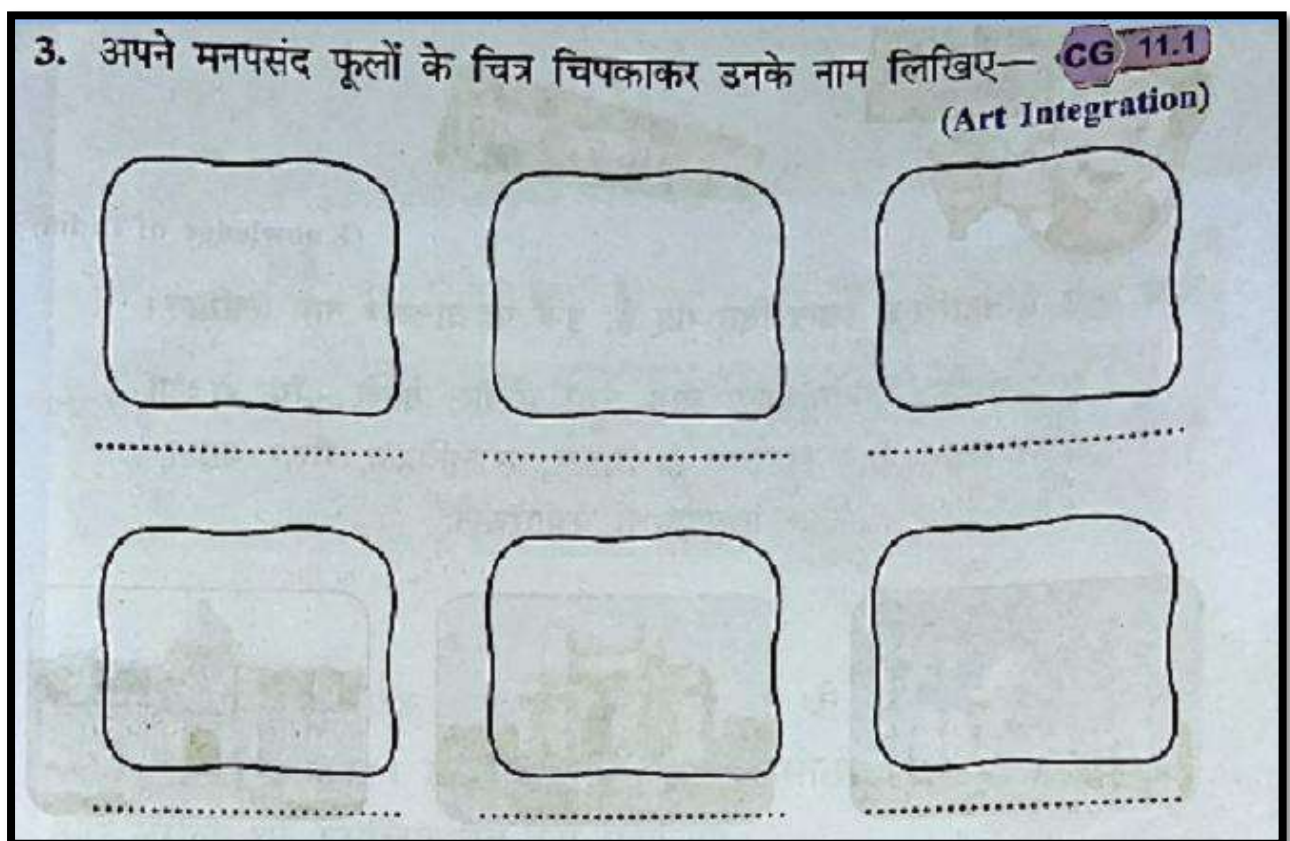 3. अपने मनपसंद फूलों के चित्र चिपकाकर उनके नाम लिखिए— CG 11.1
(Art Integration)